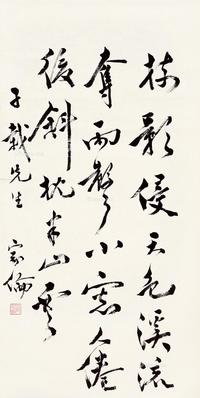 林影侵天色溪流
奪雨聲小窓人倦
後斜枕半山雲
子載先生
家倫